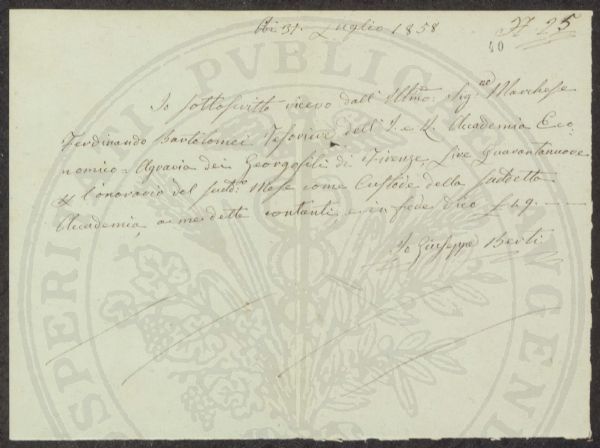 Adi 31. Luglio 1858
N 25
40
Io sottoscritto ricevo dall' Illmo: Sigre Marchese
Ferdinando Bartolomei Tesoriere dell' I. e R. Accademia Eco
nomico-Agraria dei Georgofili di Firenze, Lire Quarantanuove
l'onorario del sudd.o Mese come Custode della suddetta
Accademia, a me detto contanti e in fede dico £ 49. —
Io Giuseppe Berti
PROSPERITATI PUBLICAE AUGENDAE